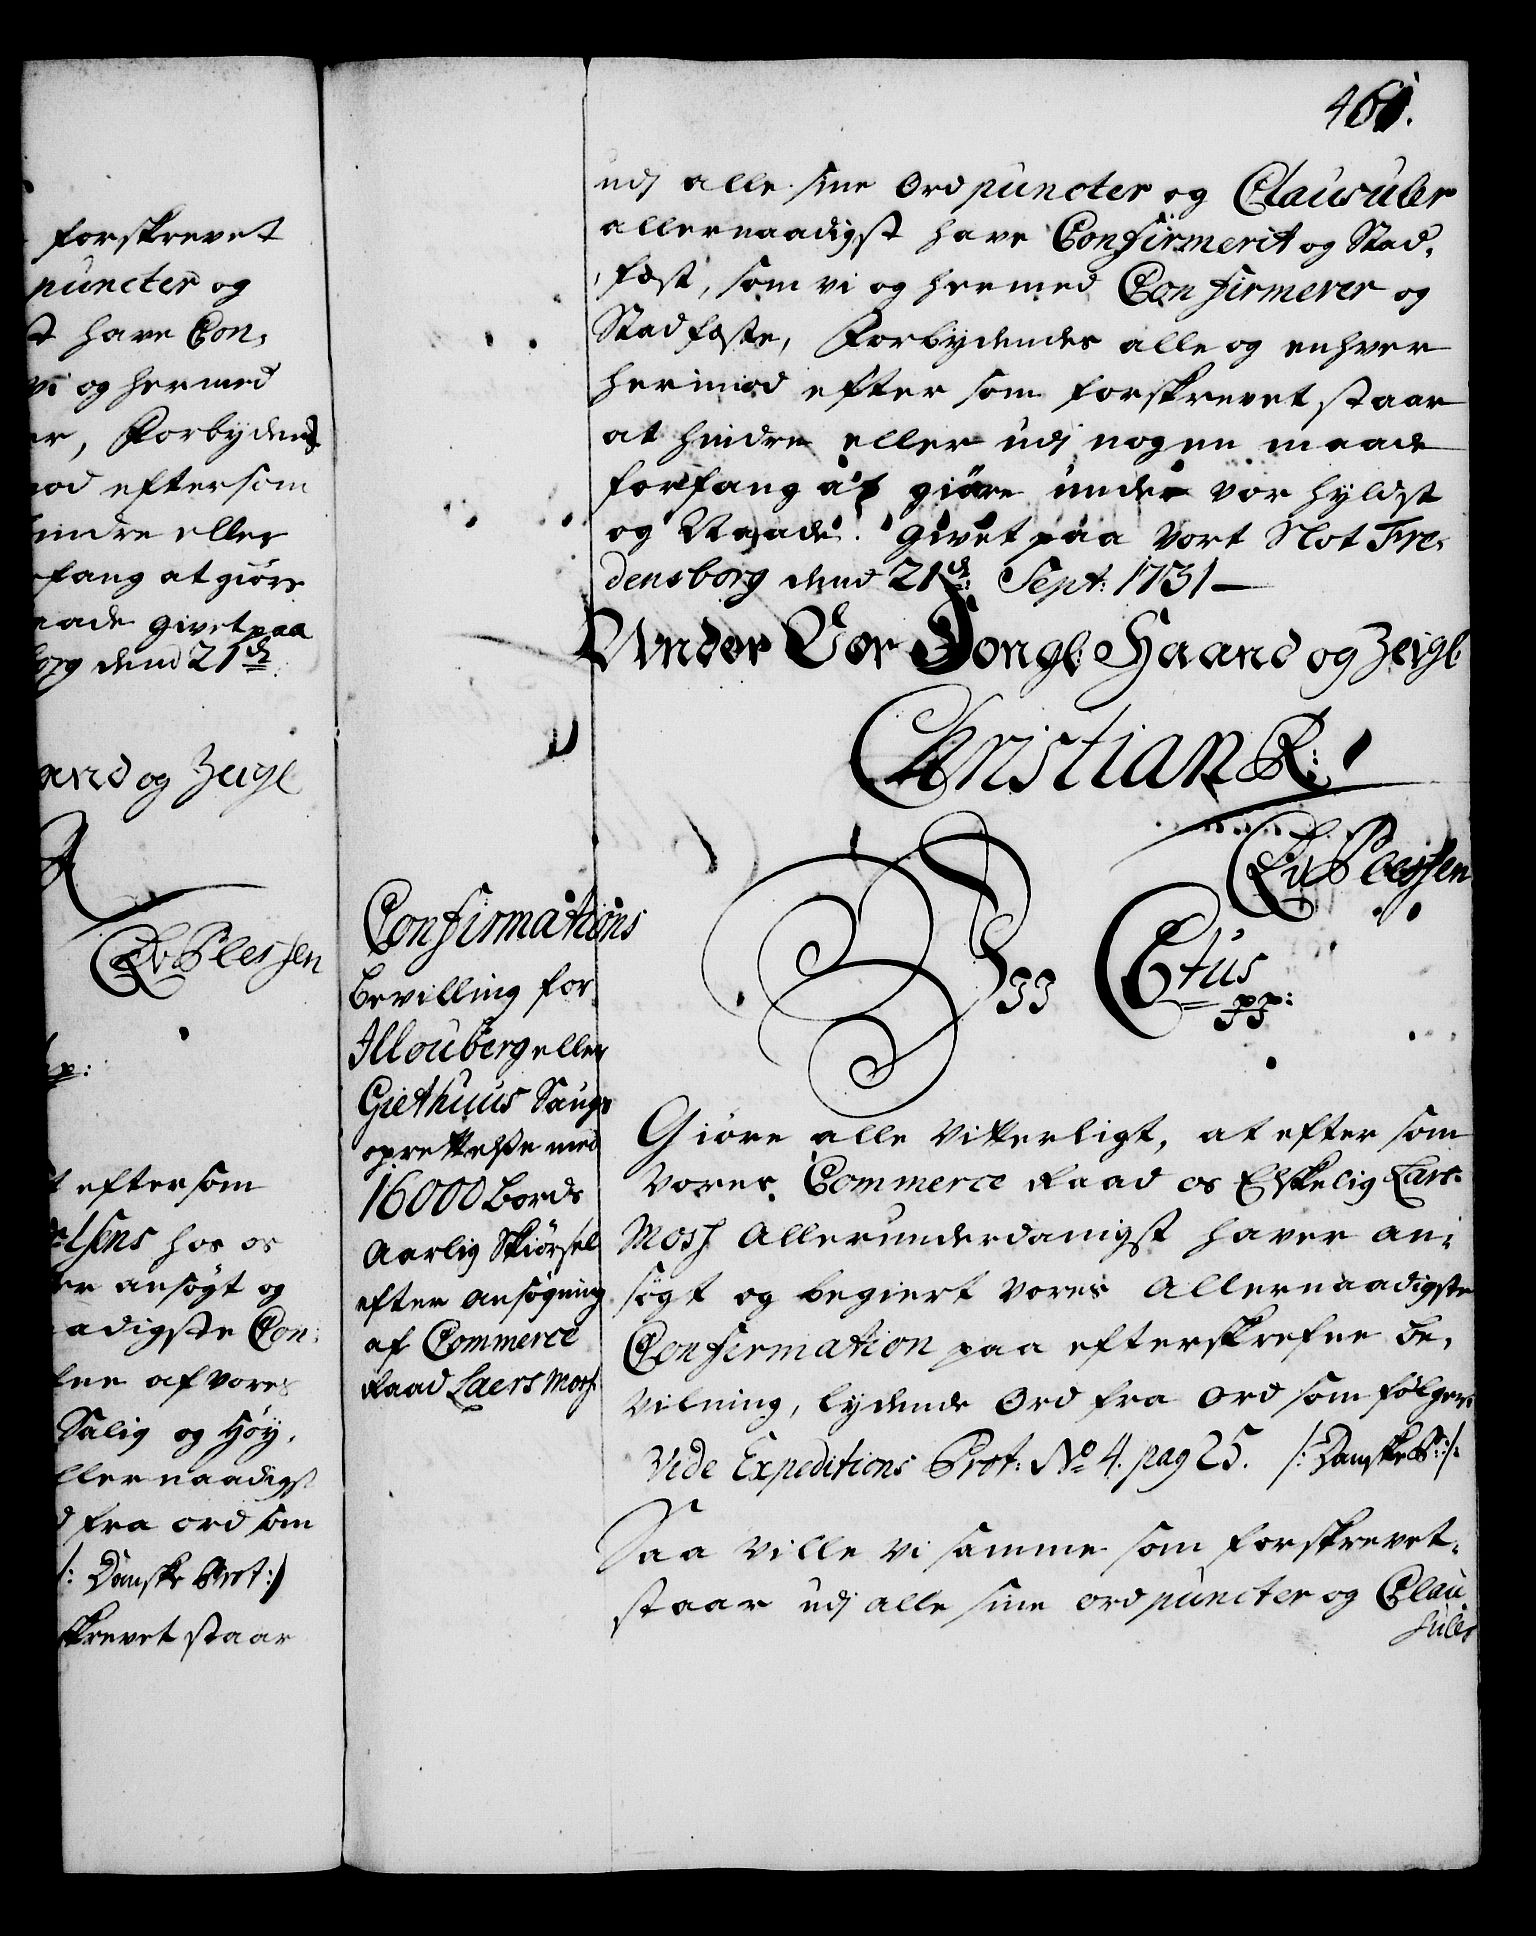 forskrevet
puncter og
have Con,
vi og hermed
er, Forbydend
mod eftersom
hindre eller
fang at giøre
givet paa
borg dend 21de
aand og Zeigl
R
CAvPlessen
pp:
eftersom
hos os
ansøgt og
adigste Con,
af vores
Salig og Høy,
llernaadigst
fra ord som
/: Danske Prot:/
skrevet staar
461.
udj alle sine Ord puncter og Clausuler
allernaadigst have Confirmerit og Stad,
fæst, som vi og hermed Confirmerer og
Stadfæste, Forbydendes alle og enhver
herimod efter som forskrevet staar
at hindre eller udj nogen maade
forfang at giøre under vor hyldst
og Naade. Givet paa Vort Slot Fre,
densborg dend 21de Sept: 1731
Under Vor Kongl: Haand og Zeigl
Christian R:
CAvPlessen
Confirmations
bevilling for
Mouberg eller
Giethuus Saugs
oprettelse med
16000 bords
Aarlig Skiørsel
efter ansøgning
af Commerce
Raad Laers Mosh
Vii C 6tus
pp:
Giøre alle Vitterligt, at efter som
Vores Commerce Raad os Elskelig Lars
Mosh Allerunderdanigst haver an,
søgt og begiert Vores Allernaadigste
Confirmation paa efterskrefne be,
vilning, lydende Ord fra Ord som følger
Vide Expeditions Prot: No 4. pag 25. /: Danske Pr: /:
Saa ville vi samme som forskrevet
staar udj alle sine ord puncter og Clau
suler